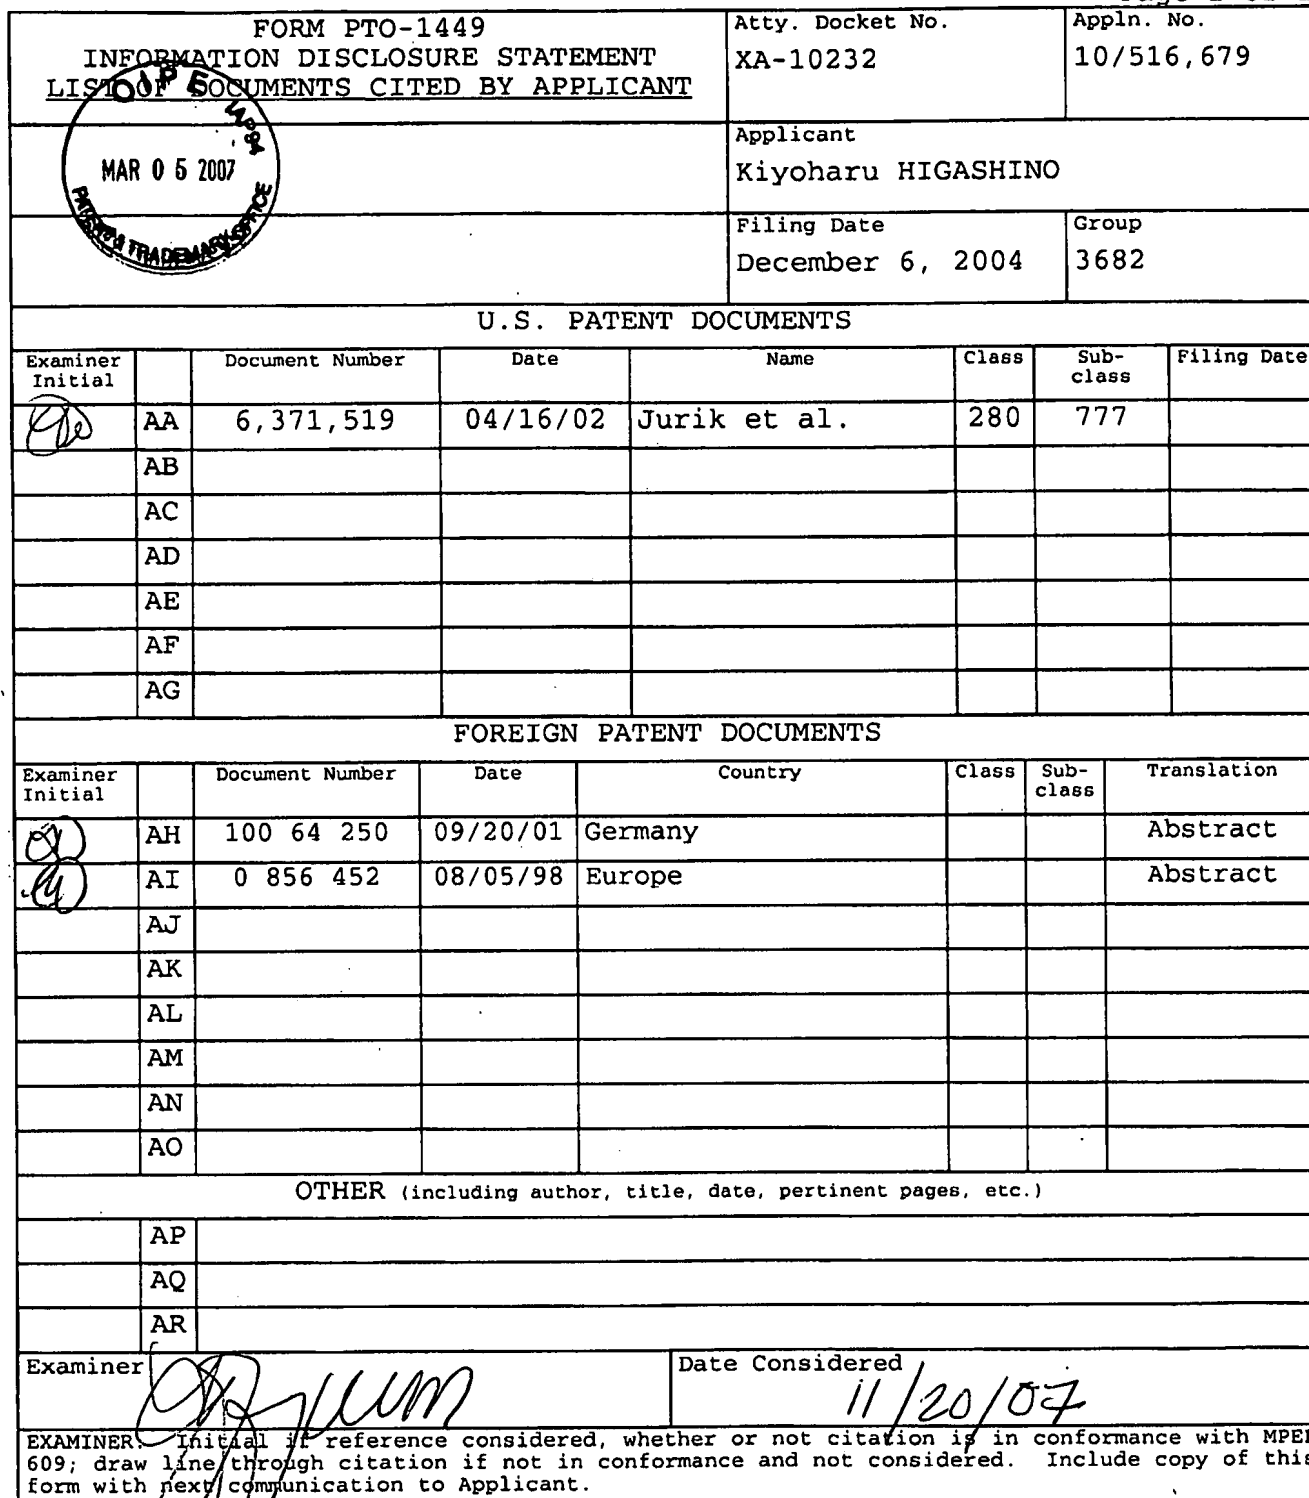 FORM PTO-1449
INFORMATION DISCLOSURE STATEMENT
LIST OF DOCUMENTS CITED BY APPLICANT
Atty. Docket No.
XA-10232
Appln. No.
10/516,679
OIPE IAP94
MAR 05 2007
PATENT & TRADEMARK OFFICE
Applicant
Kiyoharu HIGASHINO
Filing Date
December 6, 2004
Group
3682
U.S. PATENT DOCUMENTS
Examiner Initial Document Number Date Name Class Sub-class Filing Date
AA 6,371,519 04/16/02 Jurik et al. 280 777
AB
AC
AD
AE
AF
AG
FOREIGN PATENT DOCUMENTS
Examiner Initial Document Number Date Country Class Sub-class Translation
AH 100 64 250 09/20/01 Germany Abstract
AI 0 856 452 08/05/98 Europe Abstract
AJ
AK
AL
AM
AN
AO
OTHER (including author, title, date, pertinent pages, etc.)
AP
AQ
AR
Examiner
Date Considered
11/20/07
EXAMINER: Initial if reference considered, whether or not citation is in conformance with MPEP
609; draw line through citation if not in conformance and not considered. Include copy of this
form with next communication to Applicant.